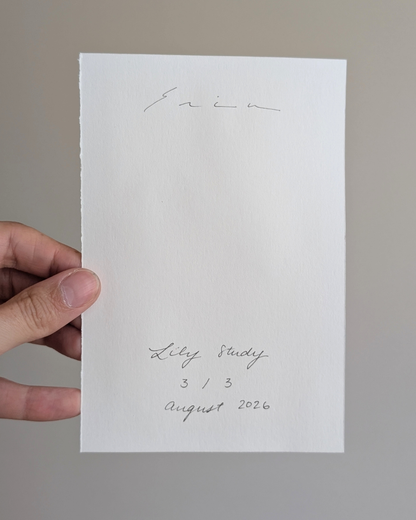 Erica
Lily Study
3 / 3
August 2026